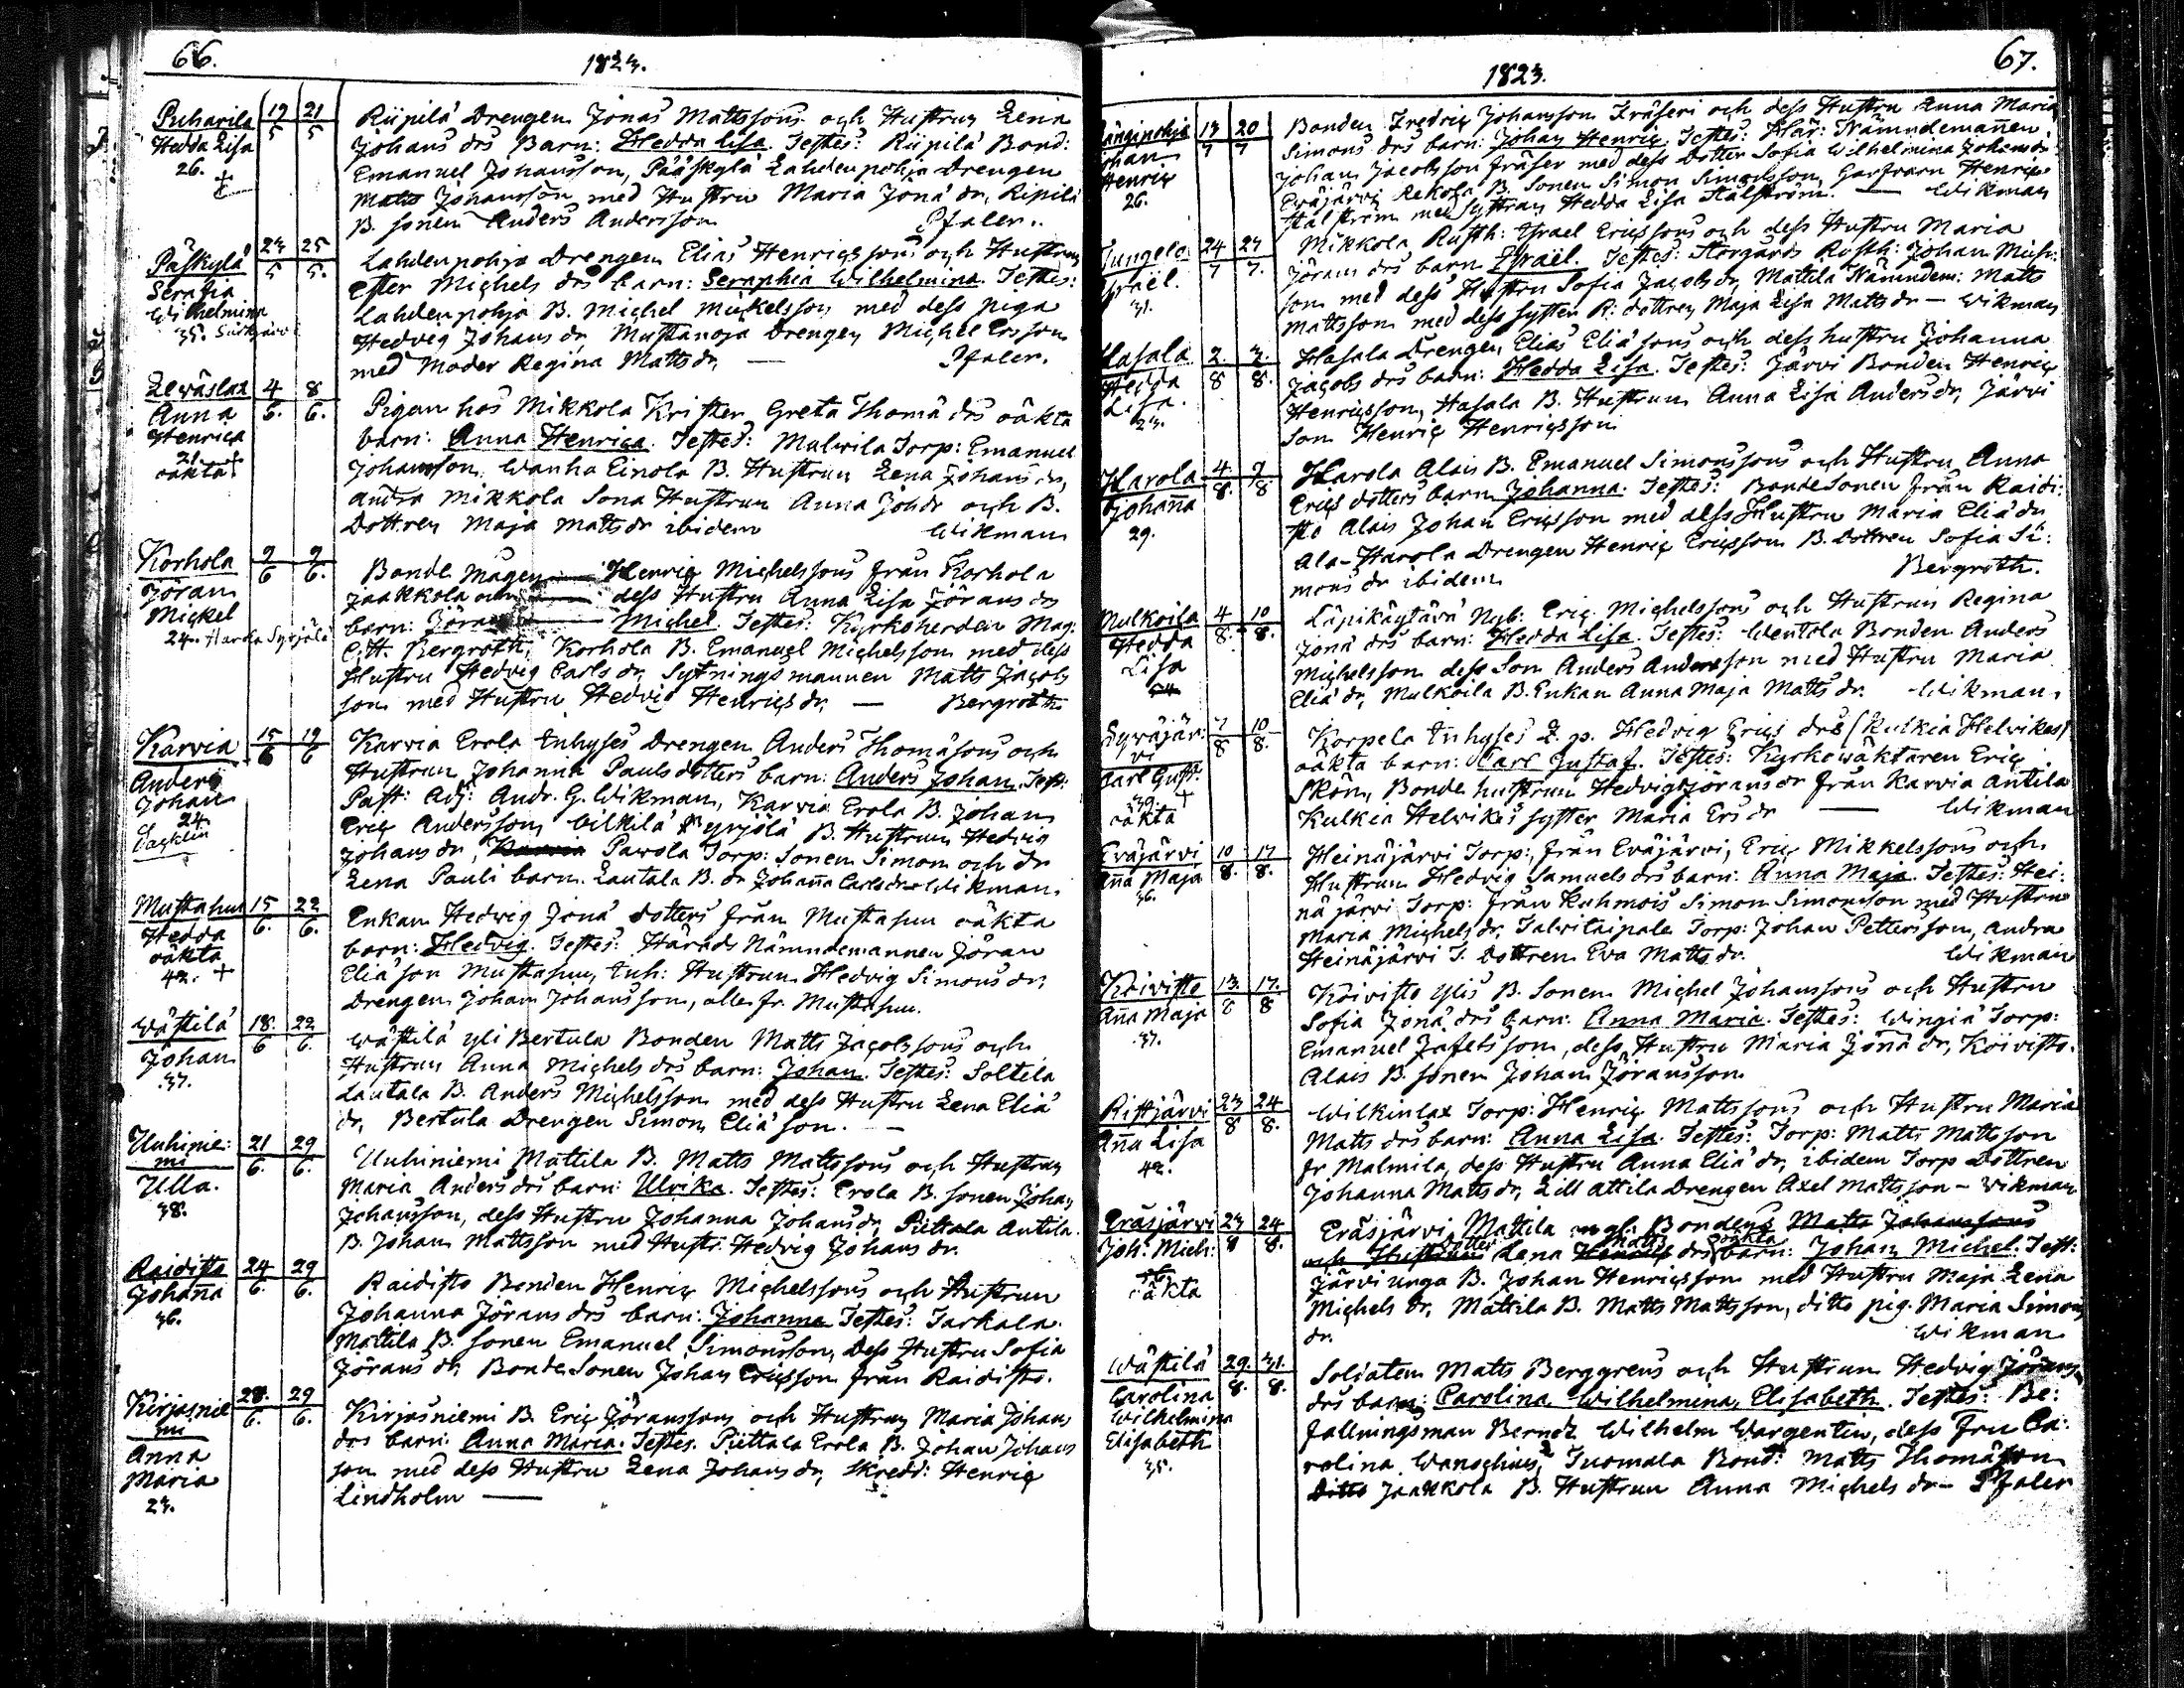 66.
1823.
Puharila 19/5 21/5
Hedda Lisa
26. +
Riipilä Drengen Jonas Mattssons och Hustrus Lena
Johans drs Barn: Hedda Lisa. Testes: Riipilä Bond:
Emanuel Johansson, Pääskylä Lahdenpohja Drengen
Matts Johansson med Hustru Maria Jonä dr, Ripilä
B. sonen Anders Andersson Pfaler.
Päskylä 23/5 25/5.
Serafia
Wilhelmina
35.
Lahdenpohja Drengen Elias Henricssons och Hustrus
Ester Michels drs barn: Seraphia Wilhelmina. Testes:
Lahdenpohja B. Michel Mickelsson med dess piga
Hedvig Johans dr, Mustanoja Drengen Michel Ersson
med Moder Regina Matts dr, — Pfaler.
Lewäslax 4/6. 8/6.
Anna
Henrica
21 +
oäkta
Pigan hos Mikkola Krister Greta Thomä drs oäkta
barn: Anna Henrica. Testes: Malwila Torp: Emanuel
Johansson, Wanha Einola B. Hustrun Lena Johans dr,
andra Mikkola Sona Hustrun Anna Joh dr och B.
Dottren Maja Matts dr ibidem Wikman
Korhola 9/6 9/6.
Jöran
Mickel
24. Harola Syrjälä
Bonde Mågen — Henric Michelssons från Korhola
Jaakkola och — dess Hustru Anna Lisa Jörans drs
barn: Jöran — Michel. Testes: Kyrkoherden Mag:
C. H. Bergroth, Korhola B. Emanuel Michelsson med dess
Hustru Hedvig Carls dr, Sytningsmannen Matts Jacobs
son med Hustru Hedvig Henrics dr, — Bergroth
Karvia 15/6 19/6
Anders
Johan
24.
Karvia Erola Inhyses Drengen Anders Thomäsons och
Hustrun Johanna Pauls dotters barn: Anders Johan. Test:
Past: Adj: Andr. G. Wikman, Karvia Erola B. Johan
Eric Andersson, Vilkilä Syrjölä B. Hustrun Hedvig
Johans dr, Karvia Pawola Torp: Sonen Simon och dr
Lena Pauli barn. Lautala B. dr Johana Carls dr Wikman.
Mustasuu 15/6. 22/6.
Hedda
oäkta
42. +
Enkan Hedwig Jonä dotters från Mustasuu oäkta
barn: Hedvig. Testes: Härads Nämndemannen Jöran
Eliä son Mustasuu, Inh: Hustrun Hedvig Simons dr,
Drengen Johan Johansson, alle fr. Mustasuu.
Wästilä 18./6 22/6.
Johan
37.
Wästilä yli Bertula Bonden Matts Jacobssons och
Hustrun Anna Michels drs barn: Johan. Testes: Soltila
Lautala B. Anders Michelsson med dess Hustru Lena Eliä
dr, Bertula Drengen Simon Eliä son. —
Uuhinie: 21/6. 29/6.
mi
Ulla.
38.
Uuhiniemi Mattila B. Matts Mattssons och Hustrus
Maria Anders drs barn: Ulrika. Testes: Erola B. sonen Johan
Johansson, dess Hustru Johanna Johans dr, Piittala Antila
B. Johan Mattsson med Hustr. Hedvig Johans dr.
Raidisto 24/6. 29/6.
Johana
36.
Raidisto Bonden Henric Michelssons och Hustrun
Johanna Jörans drs barn: Johanna Testes: Sarkala
Mattila B. sonen Emanuel Simonsson, dess Hustru Sofia
Jörans dr, Bonde Sonen Johan Ericsson från Raidisto.
Kirjasnie 28./6. 29/6.
mi
Anna
Maria
23.
Kirjasniemi B. Eric Jöranssons och Hustrus Maria Johans
drs barn: Anna Maria. Testes. Piittala Erola B. Johan Johans
son med dess Hustru Lena Johans dr, Skredd: Henric
Lindholm —
67.
1823.
Längipohja 13/7 20/7
Johan
Henric
26.
Bonden Fredric Johansson Fräseri och dess Hustru Anna Maria
Simons drs barn: Johan Henric. Testes: Här: Nämndemañen
Johan Jacobsson Fräser med dess Dotter Sofia Wilhelmina Johans dr
Eräjärvi Rekola B. Sonen Simon Simonsson, Garfvarn Henric
Stålström med Systran Hedda Lisa Stålström. — Wikman
Jungelo: 24/7 27/7.
Israël.
31.
Mikkola Rusth: Israel Ericssons och dess Hustru Maria
Jörans drs barn Israël. Testes: Storgårds Rusth: Johan Mich:
son med dess Hustru Sofia Jacobs dr, Mattila Nämndem: Matts
Mattsson med dess syster R: dottren Maja Lisa Matts dr — Wikman
Hasala 2./8 3./8.
Hedda
Lisa.
23.
Hasala Drengen Elias Eliä sons och dess hustru Johanna
Jacobs drs barn: Hedda Lisa. Testes: Järvi Bonden Henric
Henricsson, Hasala B. Hustrun Anna Lisa Anders dr, Jarvi
Son Henric Henricsson
Harola 4/8. 7/8
Johana
29.
Harola Alais B. Emanuel Simonssons och Hustru Anna
Erics dotters barn Johanna. Testes: Bonde Sonen från Raidi:
sto Alais Johan Ericsson med dess Hustru Maria Eliä dr
Ala-Harola Drengen Henric Ericsson B. Dottren Sofia Si:
mons dr ibidem Bergroth.
Mulkoila 4/8. 10/8.
Hedda
Lisa
Läpikäytävä Nyb: Eric Michelssons och Hustrun Regina
Jonä drs barn: Hedda Lisa. Testes: Wentola Bonden Anders
Michelsson dess Son Anders Andersson med Hustru Maria
Eliä dr, Mulkoila B. Enkan Anna Maja Matts dr. Wikman
Sywäjär: 7/8 10/8.
vi
Carl Gust:
+
oäkta
Korpela Inhyses L. p. Hedvig Erics drs (Kulkia Helvikes)
oäkta barn: Carl Gustaf. Testes: Kyrkowäktaren Eric
Skön, Bonde hustrun Hedvig Jörans dr från Karvia Antila
Kulkia Helwikes syster Maria Ers dr — Wikman
Eräjärvi 10/8. 17/8.
Aña Maja
36.
Heinäjärvi Torp:, från Eräjärvi, Eric Mikkelssons och
Hustrun Hedvig Samuels drs barn: Anna Maja. Testes: Hei:
näjärvi Torp: från Kuhmois Simon Simonsson med Hustru
Maria Michels dr. Talwitaipale Torp: Johan Pettersson, andra
Heinäjärvi T. Dottren Eva Matts dr. Wikman
Koivisto 13./8 17./8
Aña Maja
37.
Koivisto Ylis B. Sonen Michel Johanssons och Hustrus
Sofia Jonä drs barn: Anna Maria. Testes: Wingiä Torp:
Emanuel Jafetsson, dess Hustru Maria Jonä dr, Koivisto
Alais B. sonen Johan Jöransson
Ristjärvi 23/8 24/8.
Aña Lisa
42.
Wilkinlax Torp: Henric Mattssons och Hustru Maria
Matts drs barn: Anna Lisa. Testes: Torp: Matts Mattsson
fr Malmila, dess Hustru Anna Eliä dr, ibidem Torp Dottren
Johanna Matts dr, Lill Attila Drengen Axel Mattsson — Wikman
Eräsjärvi 23/8 24/8.
Joh: Mich:
oäkta
Eräsjärvi Mattila Bondens Matts Johanssons
och Hustrus dotter Lena Henrics Matts drs oäkta barn: Johan Michel. Test:
Järvi unga B. Johan Henricsson med Hustru Maja Lena
Michels dr, Mattila B. Matts Mattsson, ditto pig. Maria Simons
dr. Wikman
Wästilä 29./8. 31./8.
Carolina
Wilhelmina
Elisabeth
35.
Soldaten Matts Berggrens och Hustrun Hedvig Jörans
drs barn: Carolina Wilhelmina, Elisabeth. Testes: Be:
fallningsman Berndt Wilhelm Wargentin, dess Fru Ca:
rolina Wanochius, Tuomala Bond: Matts Thomäson
Ditto Jaakkola B. Hustrun Anna Michels dr — Pfaler